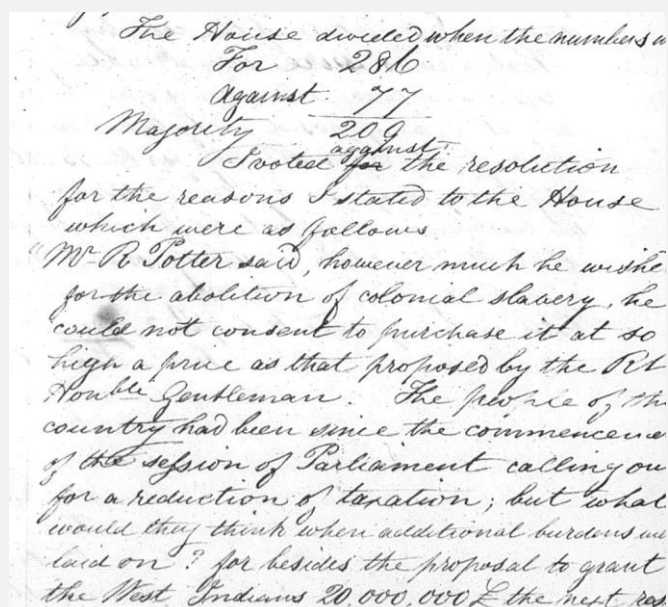 The House divided when the numbers w
For 286
Against 77
Majority 209
against
I voted for the resolution
for the reasons I stated to the House
which were as follows
"Mr R Potter said, however much he wishe
for the abolition of colonial slavery, he
could not consent to purchase it at so
high a price as that proposed by the Rt
Honble Gentleman. The people of th
country had been since the commenceme
of the session of Parliament calling ou
for a reduction of taxation; but what
would they think when additional burdens we
laid on? for besides the proposal to grant
the West Indians 20,000,000£ the next